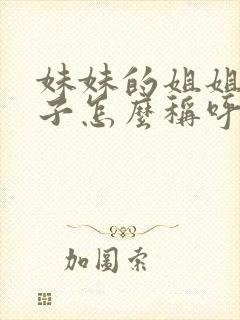 妹妹的姐姐
子怎麼稱呼
加圖索